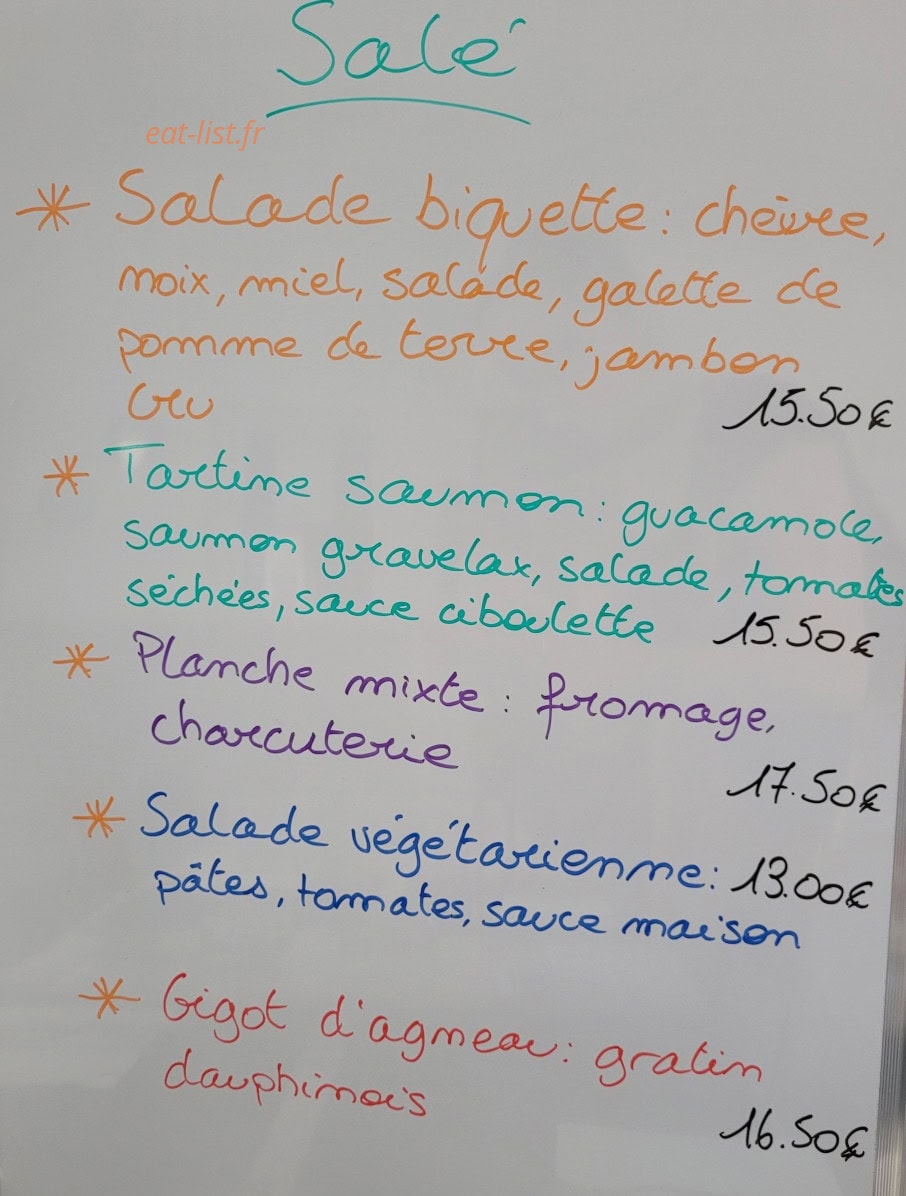 Salé
eat-list.fr
* Salade biquette : chèvre,
noix, miel, salade, galette de
pomme de terre, jambon
cru
15.50€
* Tartine saumon : guacamole,
saumon gravelax, salade, tomates
séchées, sauce ciboulette 15.50€
* Planche mixte : fromage,
charcuterie
17.50€
* Salade végétarienne : 13.00€
pâtes, tomates, sauce maison
* Gigot d'agneau : gratin
dauphinois
16.50€